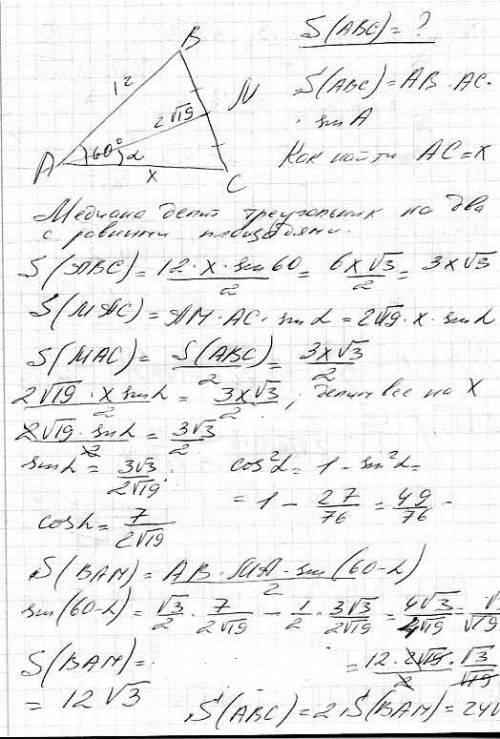 S(ABC) = ?
B
12
2√19
M
A
60°
α
x
C
S(ABC) = AB · AC ·
· sin A
Как найти AC = x
Медиана делит треугольник на два
с равными площадями.
S(ABC) = 12 · x · sin 60 / 2 = 6x√3 / 2 = 3x√3
S(MAC) = AM · AC · sin α = 2√19 · x · sin α
S(MAC) = S(ABC) / 2 = 3x√3 / 2
2√19 · x sin α / 2 = 3x√3 / 2 ; делим все на x
2√19 · sin α / 2 = 3√3 / 2
sin α = 3√3 / 2√19 .
cos²α = 1 - sin²α =
= 1 - 27/76 = 49/76 -
cos α = 7 / 2√19
S(BAM) = AB · MA · sin(60-α) / 2
sin(60-α) = √3/2 · 7/2√19 - 1/2 · 3√3/2√19 = 4√3/4√19 = √/√19
S(BAM) =
= 12 · 2√19 / 2 · √3/√19
= 12√3
S(ABC) = 2 S(BAM) = 24√